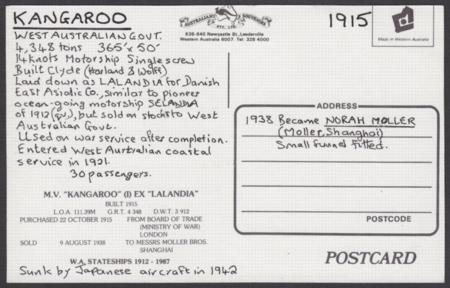 KANGAROO
WEST AUSTRALIAN GOVT.
4,348 tons 365' x 50'
14 knots Motorship Single screw
Built Clyde (Harland & Wolff)
Laid down as LALANDIA for Danish
East Asiatic Co., similar to pioneer
ocean-going motorship SELANDIA
of 1912 (q.v.), but sold on stocks to West
Australian Govt.
Used on war service after completion.
Entered West Australian coastal
service in 1921.
30 passengers.
M.V. "KANGAROO" (I) EX "LALANDIA"
BUILT 1915
L.O.A. 111.39M G.R.T. 4 348 D.W.T. 3 912
PURCHASED 22 OCTOBER 1915 FROM BOARD OF TRADE
(MINISTRY OF WAR)
LONDON
SOLD 9 AUGUST 1938 TO MESSRS MOLLER BROS.
SHANGHAI
W.A. STATESHIPS 1912 - 1987
Sunk by Japanese aircraft in 1942
AUSTRALIAN SOUVENIR
PTY. LTD.
636-640 Newcastle St., Leederville
Western Australia 6007. Tel: 328 4000
1915
Made in Western Australia
ADDRESS
1938 Became NORAH MOLLER
(Moller, Shanghai)
Small funnel fitted.
POSTCODE
POSTCARD